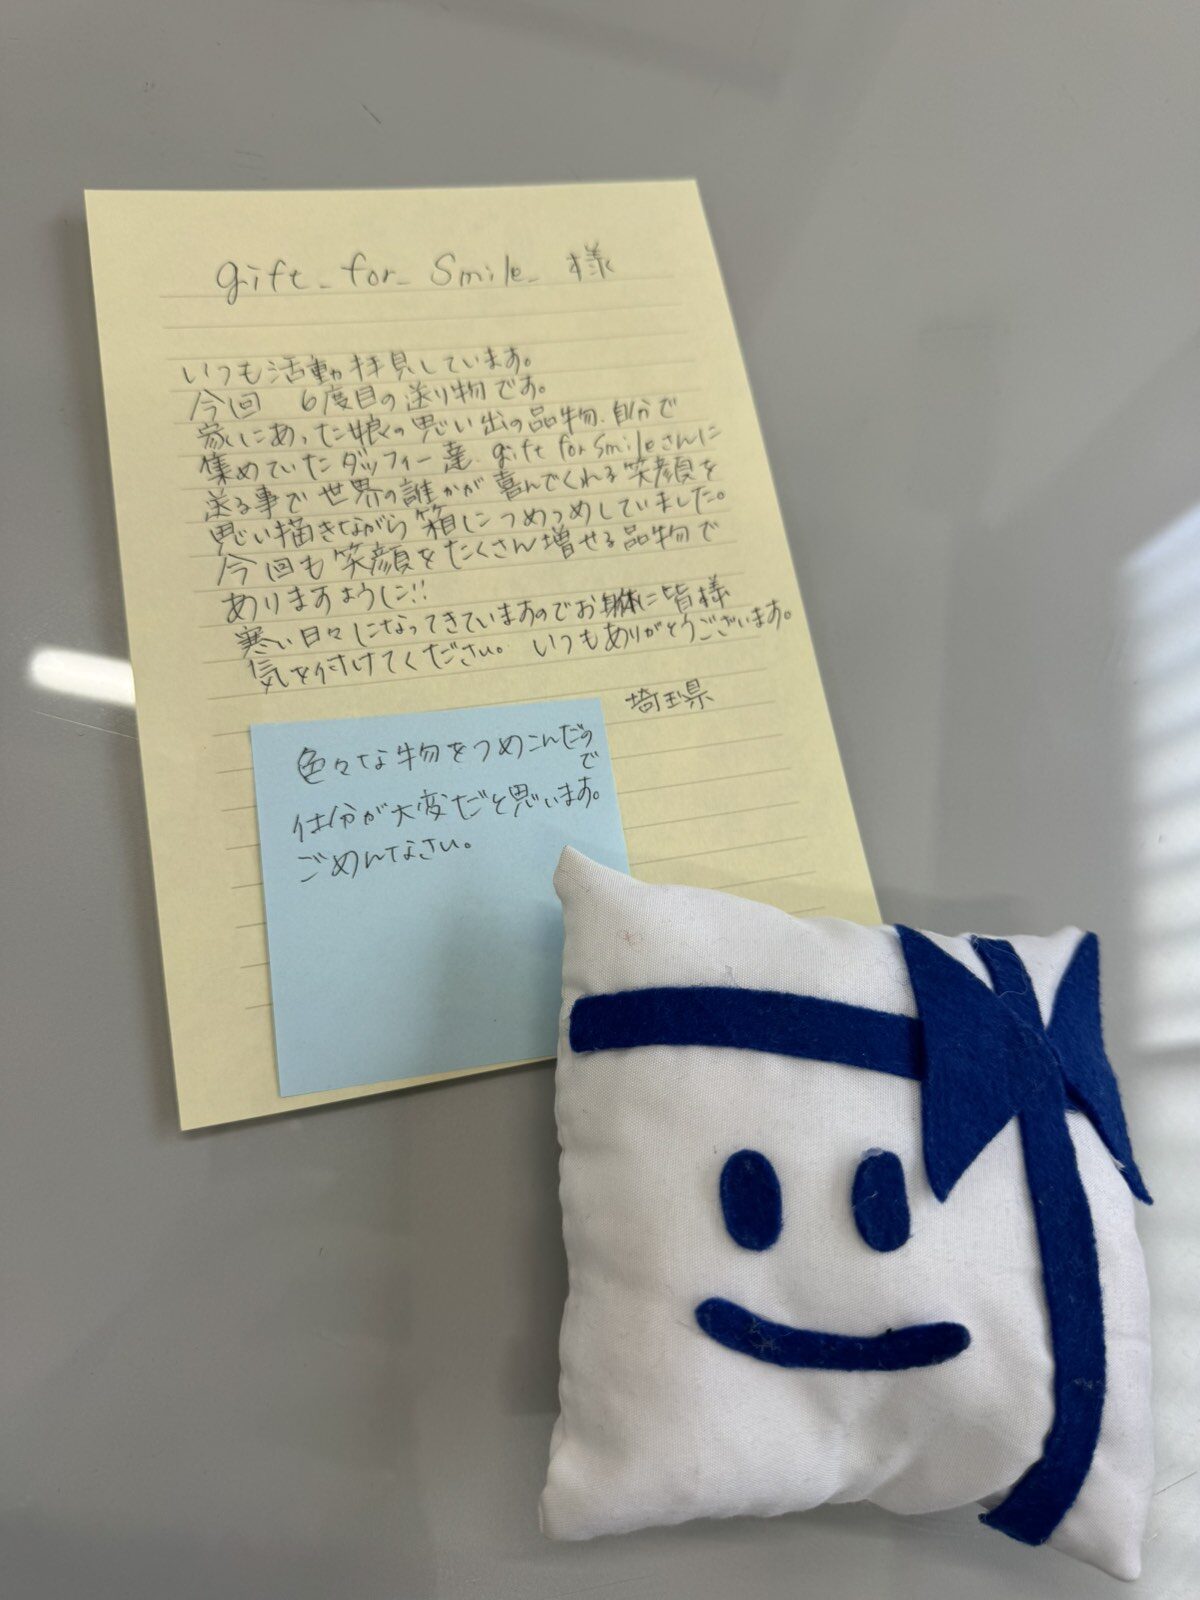 gift_for_smile_様
いつも活動拝見しています。
今回 6度目の送り物です。
家にあった娘の思い出の品物、自分で
集めていたダッフィー達、gift for smileさんに
送る事で世界の誰かが喜んでくれる笑顔を
思い描きながら箱につめつめしていました。
今回も笑顔をたくさん増せる品物で
ありますように!!
寒い日々になってきていますのでお身体に皆様
気を付けてください。いつもありがとうございます。
埼玉県
色々な物をつめこんだので
仕分が大変だと思います。
ごめんなさい。